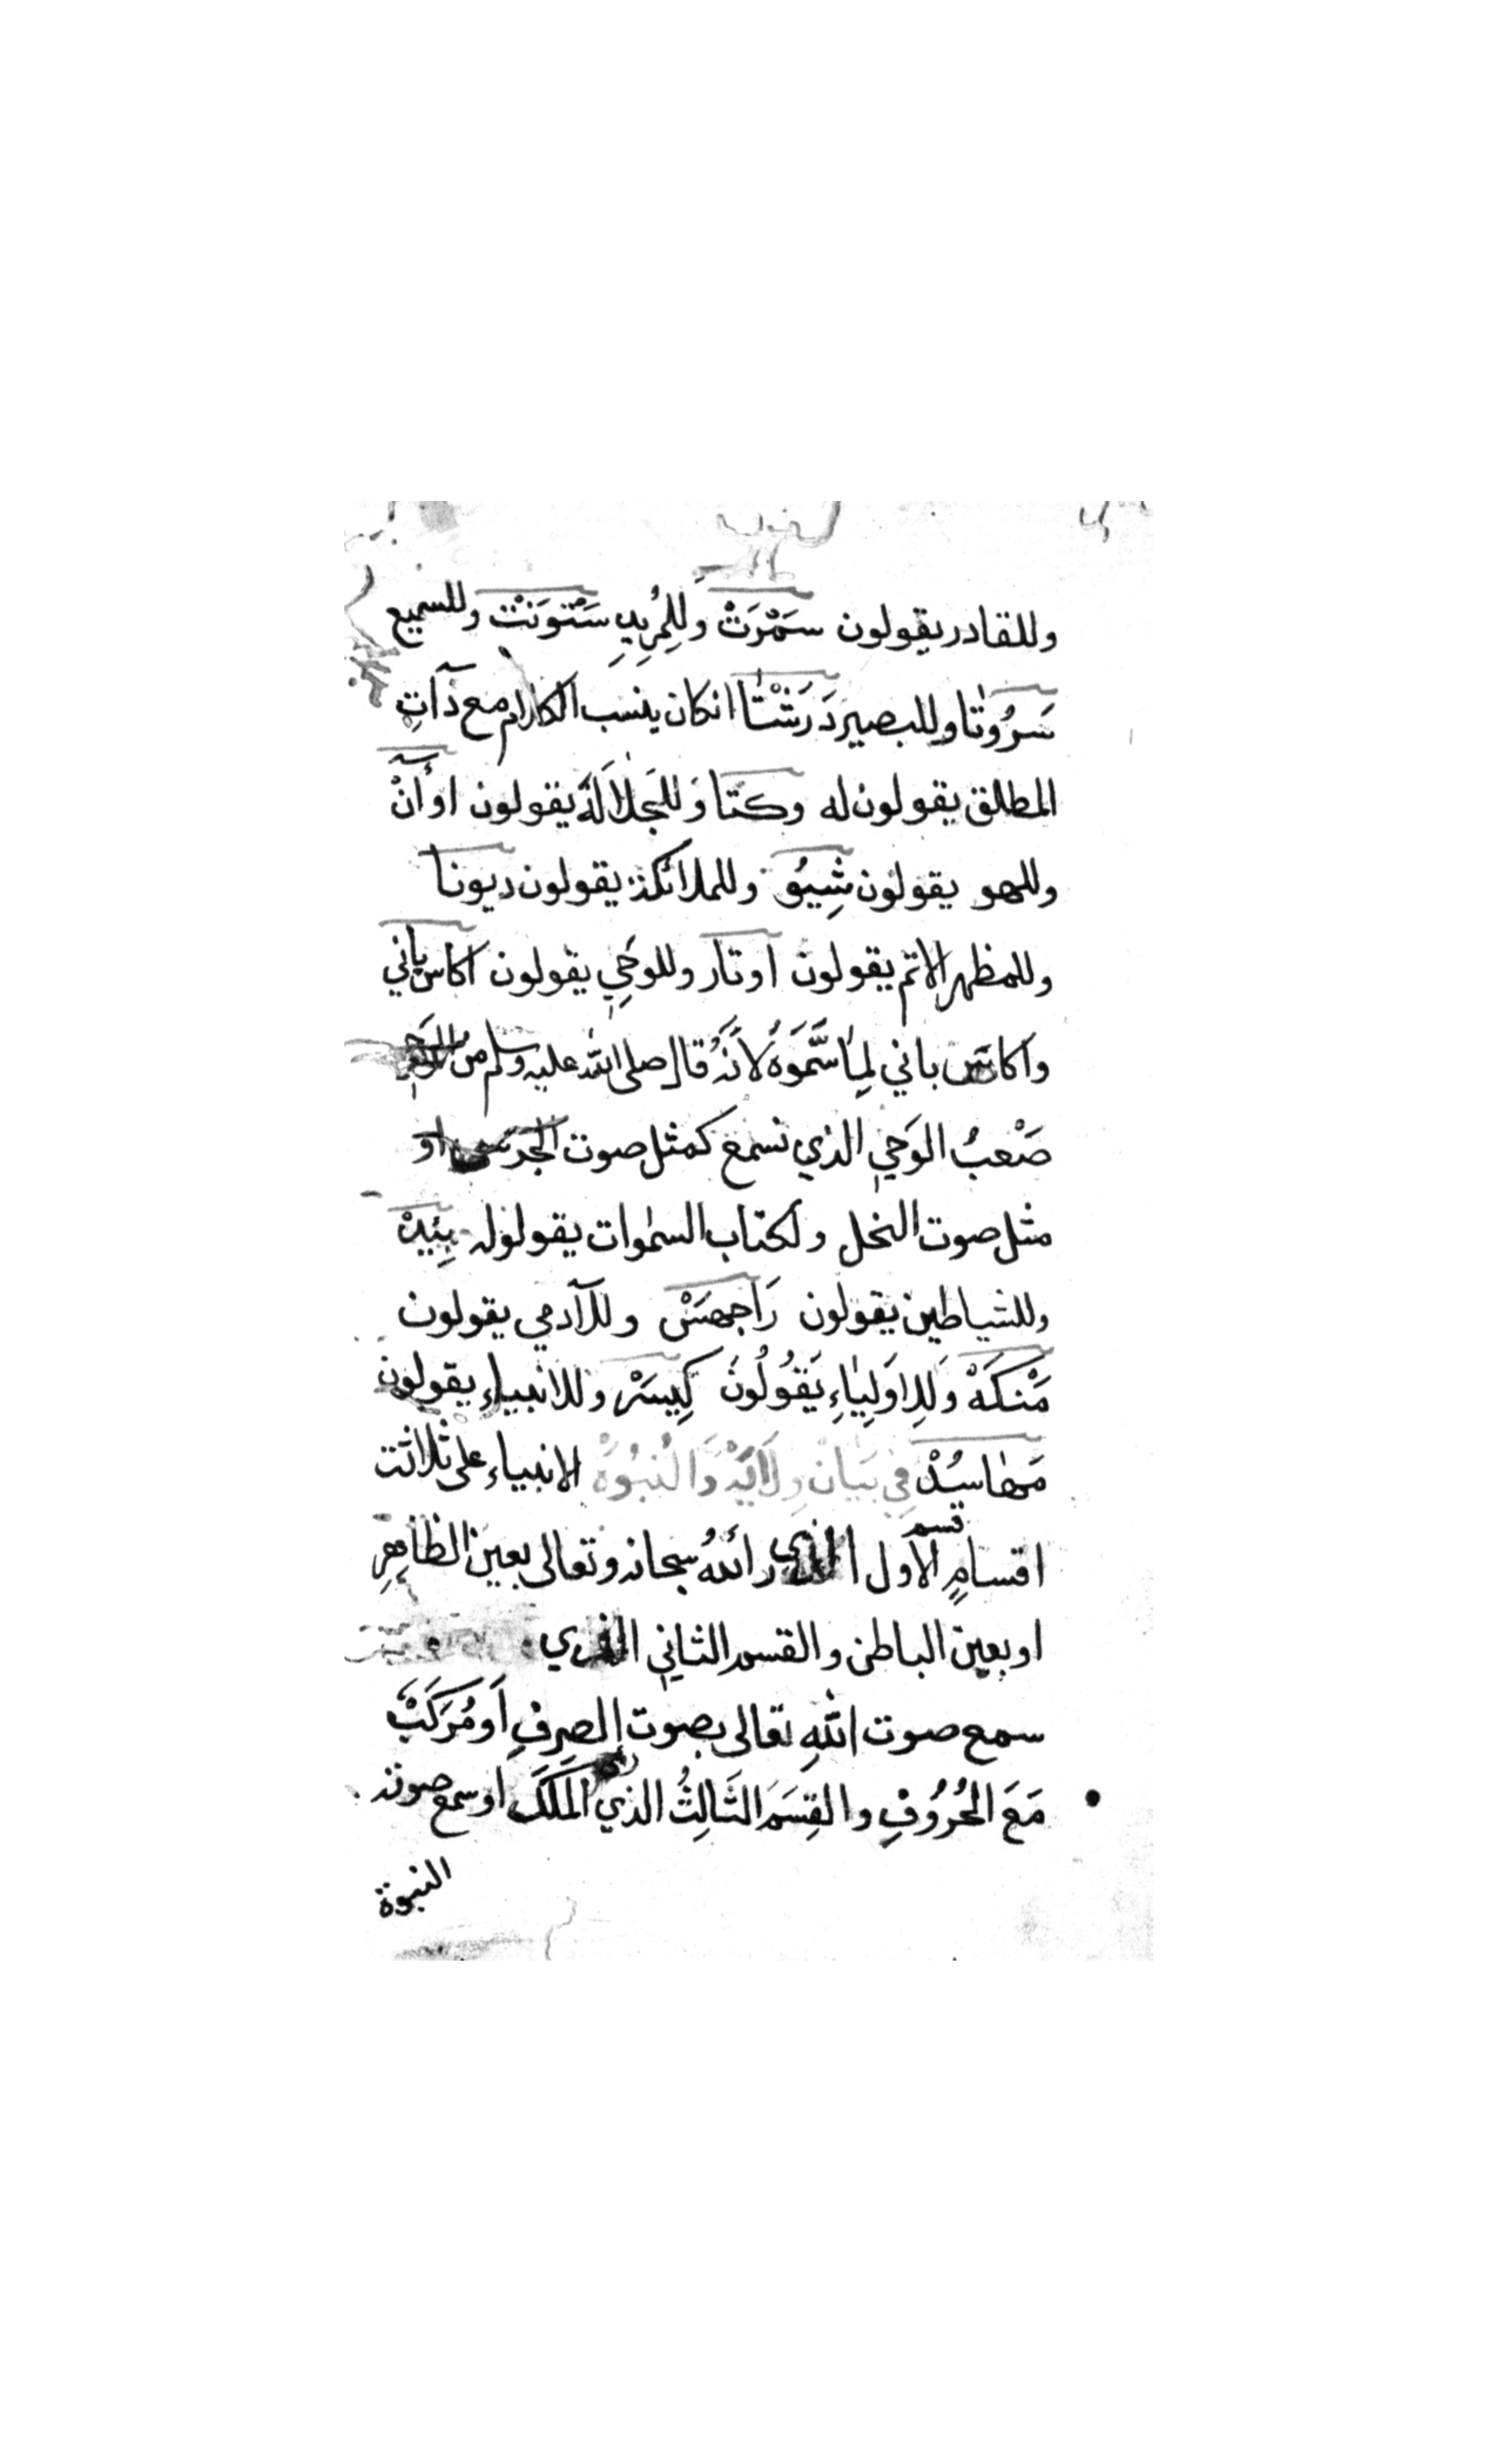 وللقادر يقولون سَمْرَتْ وَلِلمُرِيدِ سَتْوَنَتْ وللسميع
سَرُوتا وللبصير دَرَشْتَا انكان ينسب الكلام مع ذآتِ
المطلق يقولون له وكتا وَلِلجَلَالَةَ يقولون اوأنْ
وللهو يقولون شِيبُو وللملائكة يقولون ديونا
وللمظهر الاتم يقولون اوتار وللوحِي يقولون اكاس باني
واكاس باني لِمَا سَّمَوهُ لَانَهُ قال صلى الله عليه وسلم من الوَحي
صَعْبُ الوَحي الذي نسمع كمثل صوت الجرس او
مثل صوت النخل ولكتاب السمٰوات يقولوله بِئيدْ
وللشياطين يقولون رَاجهسَنْ وللآدمي يقولون
مَنْكَهْ وَلِلاوَلِيَاءِ يَقُولُونَ كِيسَرْ وللانبياء يقولون
مَهاسُدْ فِي بَيَانْ وِلَايَةْ وَالنُبُوَةْ الانبياء على ثلاثت
اقسامٍ قسم الاول الذي رائَهُ سبحانه وتعالى بعين الظاهِرِ
او بعين الباطن والقسم الثاني الذي
سمع صوت اللهِ تعالى بصوت الصرفِ اَو مُرَكَبْ
مَعَ الحُرُوفِ والقِسَمَ الثَالِثُ الذي المَلَكَ او سمع صوته
النبوة